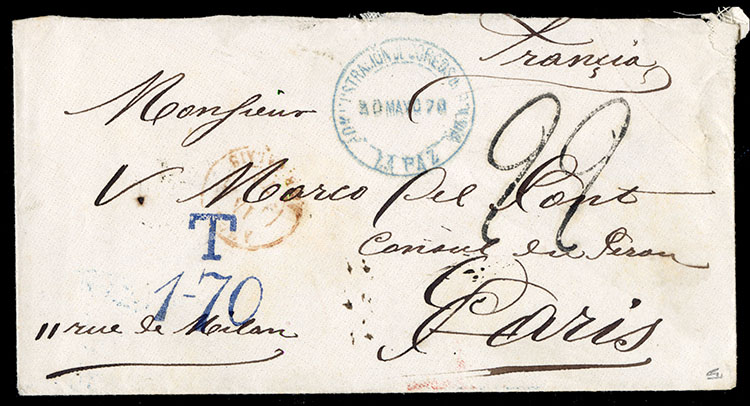 Francia
ADMINISTRACION DE CORREOS
30 MAYO 78
LA PAZ
Monsieur
22
V Marco del Pont
Consul du Perou
T
1-70
11 rue de Milan
Paris